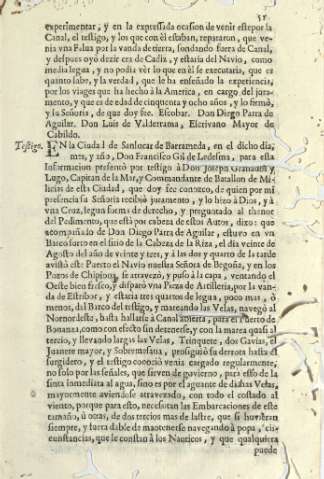 51
experimentar, y en la expressada ocasion de venir este por la
Canal, el testigo, y los que con èl estaban, repararon, que ve-
nia una Falua por la vanda de tierra, sondando fuera de Canal,
y despues oyò dezir era de Cadiz, y estaria del Navio, como
media legua, y no podia vèr lo que en èl se executaria, que es
quanto sabe, y la verdad, que le ha enseñado la experiencia,
por los viages que ha hecho à la America, en cargo del jura-
mento, y que es de edad de cinquenta y ocho años, y lo firmò,
y la Señoria, de que doy fee. Escobar. Don Diego Parra de
Aguilar. Don Luis de Valderrama, Escrivano Mayor de
Cabildo.
Testigo. EN la Ciudad de Sanlucar de Barrameda, en el dicho dia,
mes, y año, Don Francisco Gil de Ledesma, para esta
Informacion presentò por testigo à Don Joseph
Lugo, Capitan de la Mar, y Commandante de Batallon de Mi-
licias de esta Ciudad, que doy fee conozco, de quien por mi
presencia su Señoria recibiò juramento, y lo hizo à Dios, y à
una Cruz, segun forma de derecho, y preguntado al thenor
del Pedimento, que està por cabeza de estos Autos, dixo: que
acompañado de Don Diego Parra de Aguilar, estuvo en un
Barco surto en el sitio de la Cabeza de la Riza, el dia veinte de
Agosto del año de veinte y tres, y à las dos y quarto de la tarde
avistò este Puerto el Navio nuestra Señora de Begoña, y en los
Pozos de Chipiona, se atravezò, y puso à la capa, ventando el
Oeste bien fresco, y disparò una Pieza de Artilleria, por la van-
da de Estribor, y estaria tres quartos de legua, poco mas, ò
menos, del Barco del testigo, y mareando las Velas, navegò al
Nornordeste, hasta hallarse à Canal abierta, para el Puerto de
Bonanza, como con efecto sin detenerse, y con la marea quasi al
tercio, y llevando largas las Velas, Trinquete, dos Gavias, el
Juanete mayor, y Sobremesana, prosiguiò su derrota hasta el
surgidero, y el testigo conociò venia cargado regularmente,
no solo por las señales, que sirven de govierno, para esso de la
sinta inmediata al agua, sino es por el aguante de dichas Velas,
mayormente aviendese atravezado, con todo el costado al
viento, porque para esto, necesitan las Embarcaciones de este
tamaño, ù otras, de dos tercios mas de lastre, que si huvieran
siempre, y fuera dable de mantenerse navegando à popa, cir-
cunstancias, que le constan à los Nauticos, y que qualquiera
puede